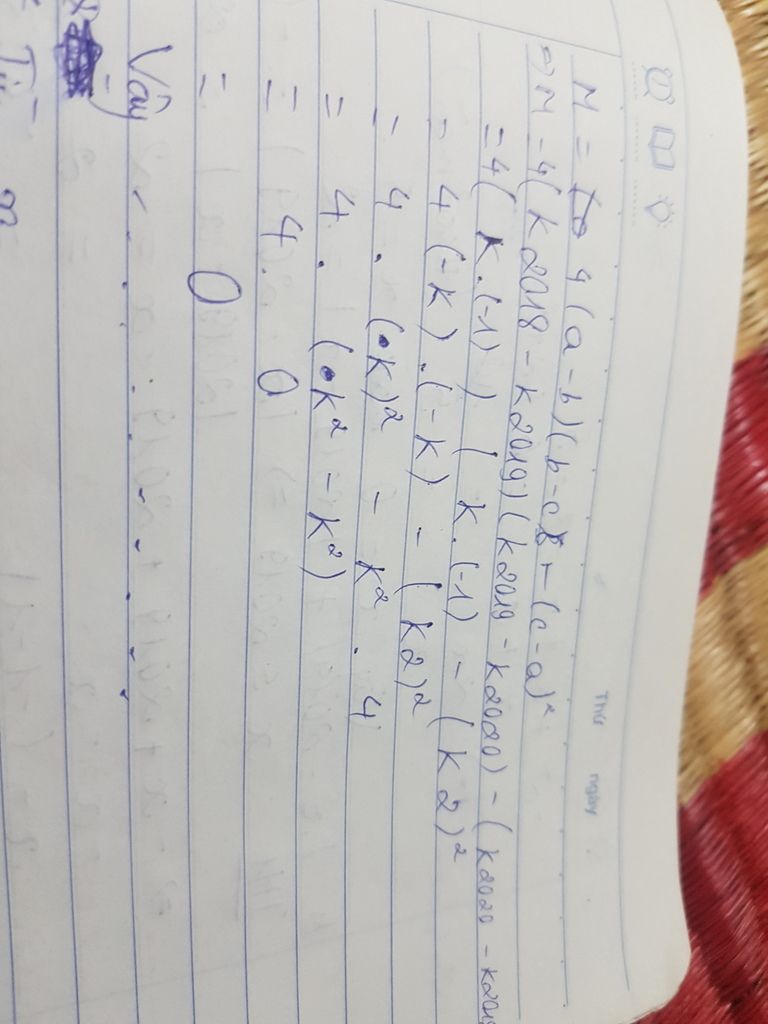 Thứ ngày
M = 4 (a - b)(b - c) - (c - a)²
=> M = 4(k2018 - k2019)(k2019 - k2020) - (k2020 - k2018
= 4(k.(-1)) (k.(-1) - (k2)²
= 4 (-k).(-k) - (k2)²
= 4 . (k)² - k² . 4
= 4 . (k² - k²)
= 4. 0
= 0
Vậy